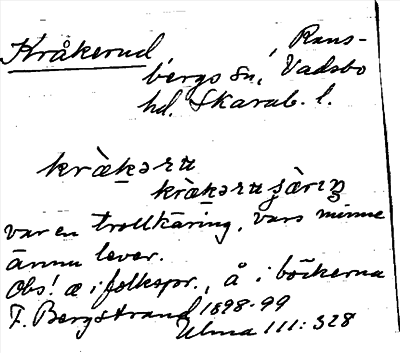 Kråkerud, Rans-
bergs sn, Vadsbo
hd, Skarab. l.
kràkəru
kràkəru ʂàrɪŋ
var en trollkäring, vars minne
ännu lever.
Obs! æ i folkspr., å i böckerna
F. Bergstrand 1898-99
Ulma 111:328